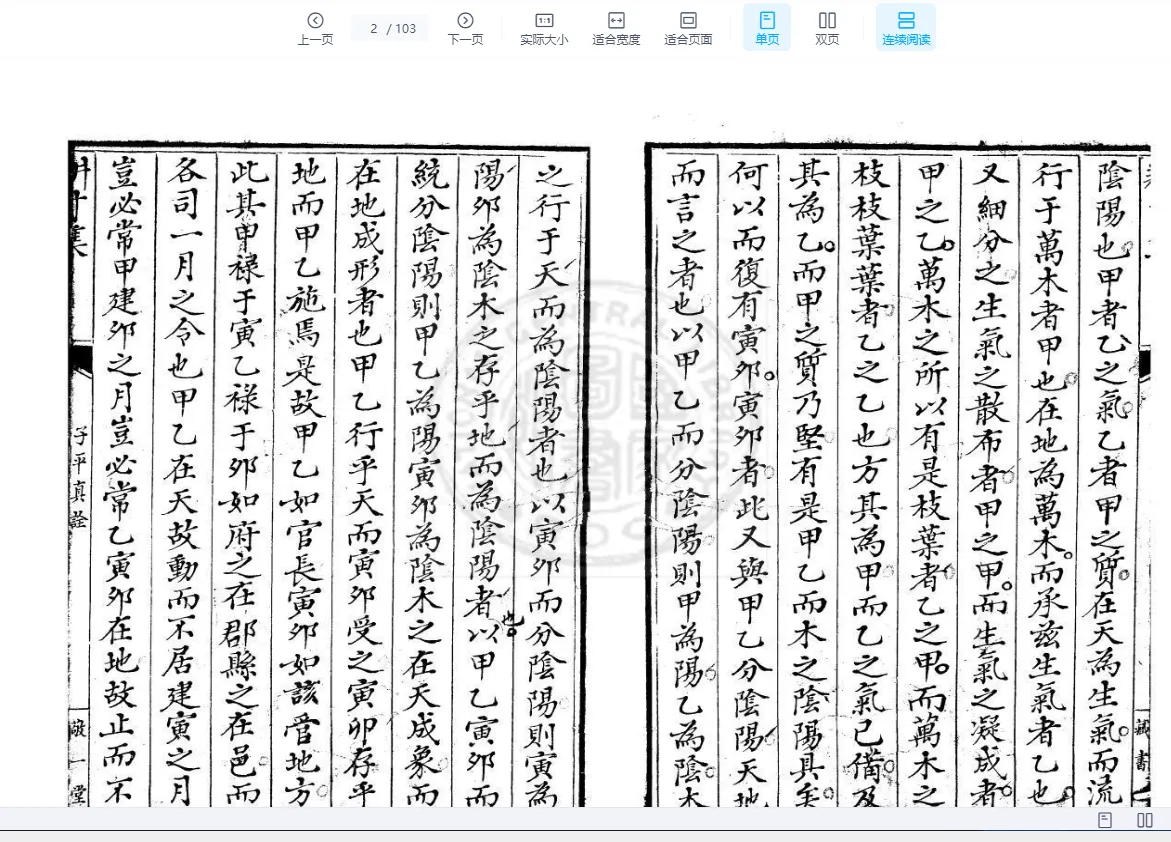 上一页
2 / 103
下一页
1:1
实际大小
适合宽度
适合页面
单页
双页
连续阅读
陰陽也。甲者乙之氣。乙者甲之質。在天為生氣。而流
行于萬木者甲也。在地為萬木。而承茲生氣者乙也。
又細分之。生氣之散布者。甲之甲。而生氣之凝成者。
甲之乙。萬木之所以有是枝葉者。乙之甲。而萬木之
枝枝葉葉者。乙之乙也。方其為甲。而乙之氣已備。及
其為乙。而甲之質乃堅。有是甲乙而木之陰陽具矣。
何以而復有寅夘。寅夘者。此又與甲乙分陰陽。天地
而言之者也。以甲乙而分陰陽。則甲為陽。乙為陰。木
之行于天而為陰陽者也以寅夘而分陰陽則寅為
陽夘為陰木之存乎地而為陰陽者也。以甲乙寅夘而
統分陰陽則甲乙為陽寅夘為陰木之在天成象而
在地成形者也甲乙行乎天而寅夘受之寅卯存乎
地而甲乙施焉是故甲乙如官長寅夘如該管地方。
此其甲祿于寅乙祿于夘如府之在郡縣之在邑。而
各司一月之令也甲乙在天故動而不居建寅之月
豈必常甲建夘之月豈必常乙寅夘在地故止而不
子平真詮
敬一堂